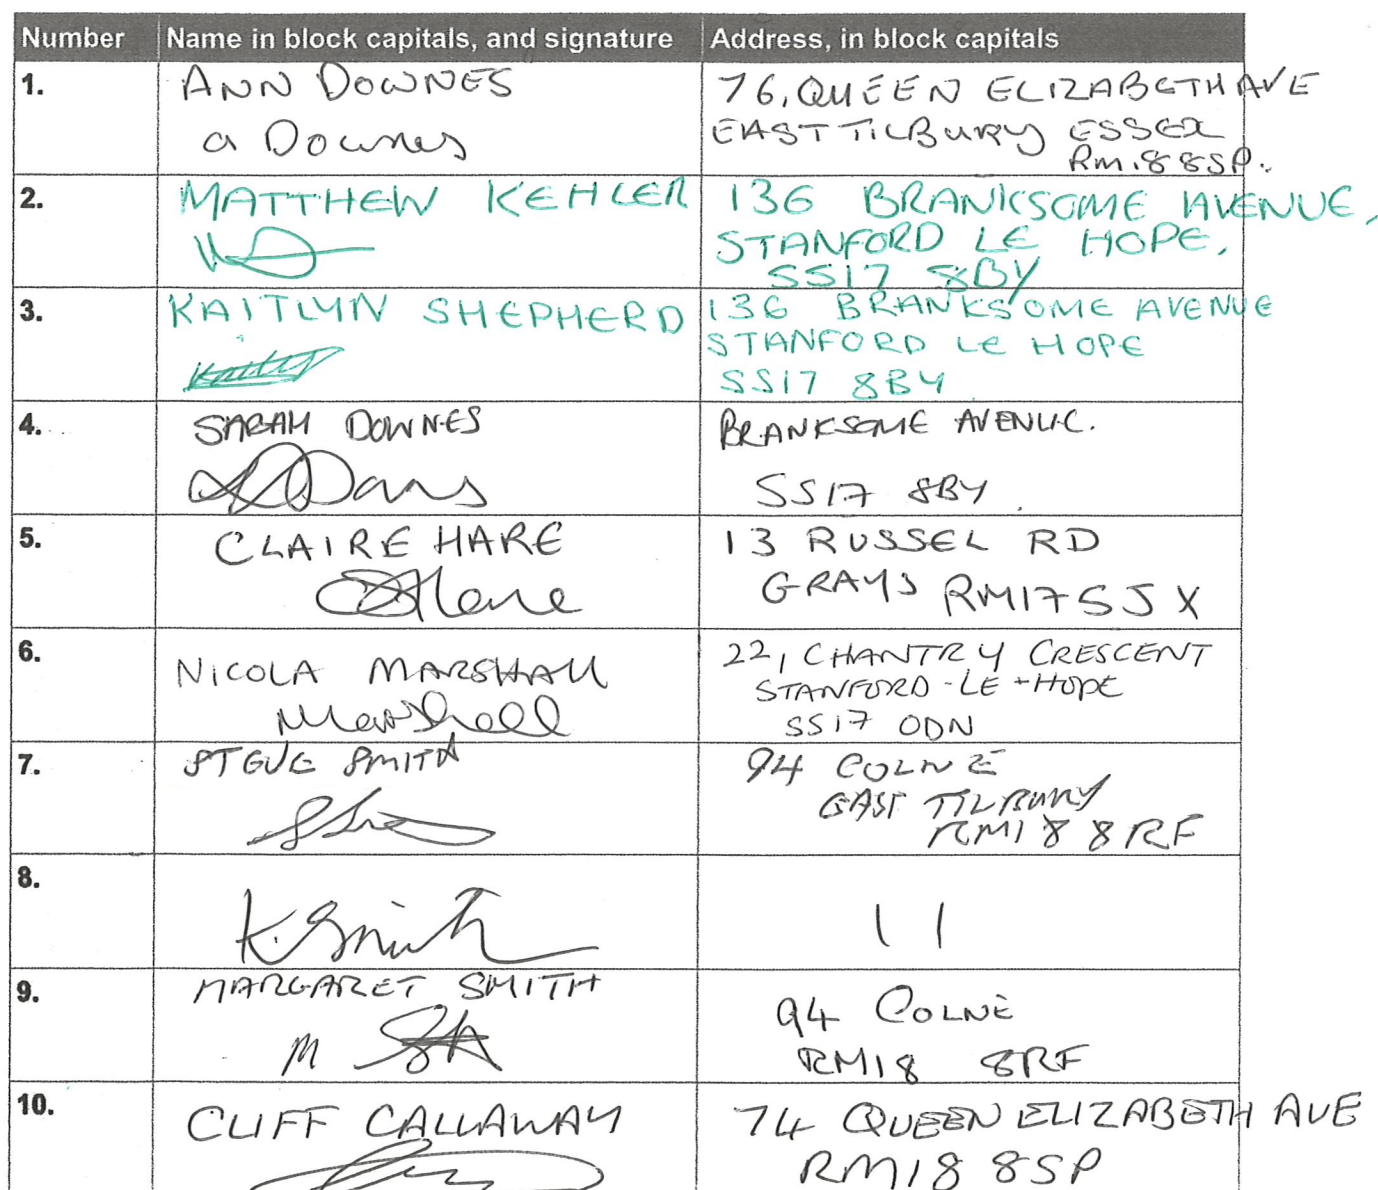 Number Name in block capitals, and signature Address, in block capitals
1. ANN DOWNES 76, QUEEN ELIZABETH AVE
a Downes EAST TILBURY ESSEX
RM18 8SP.
2. MATTHEW KEHLER 136 BRANKSOME AVENUE,
STANFORD LE HOPE,
SS17 8BY
3. KAITLYN SHEPHERD 136 BRANKSOME AVENUE
STANFORD LE HOPE
Kaitlyn SS17 8BY
4. SARAH DOWNES BRANKSOME AVENUE.
SS17 8BY
5. CLAIRE HARE 13 RUSSEL RD
Hare GRAYS RM17 5JX
6. NICOLA MARSHALL 22, CHANTRY CRESCENT
STANFORD-LE-HOPE
Marshall SS17 0DN
7. STEVE SMITH 94 COLNE
EAST TILBURY
RM18 8RF
8.
K. Smith 11
9. MARGARET SMITH 94 COLNE
M RM18 8RF
10. CLIFF CALLAWAY 74 QUEEN ELIZABETH AVE
RM18 8SP